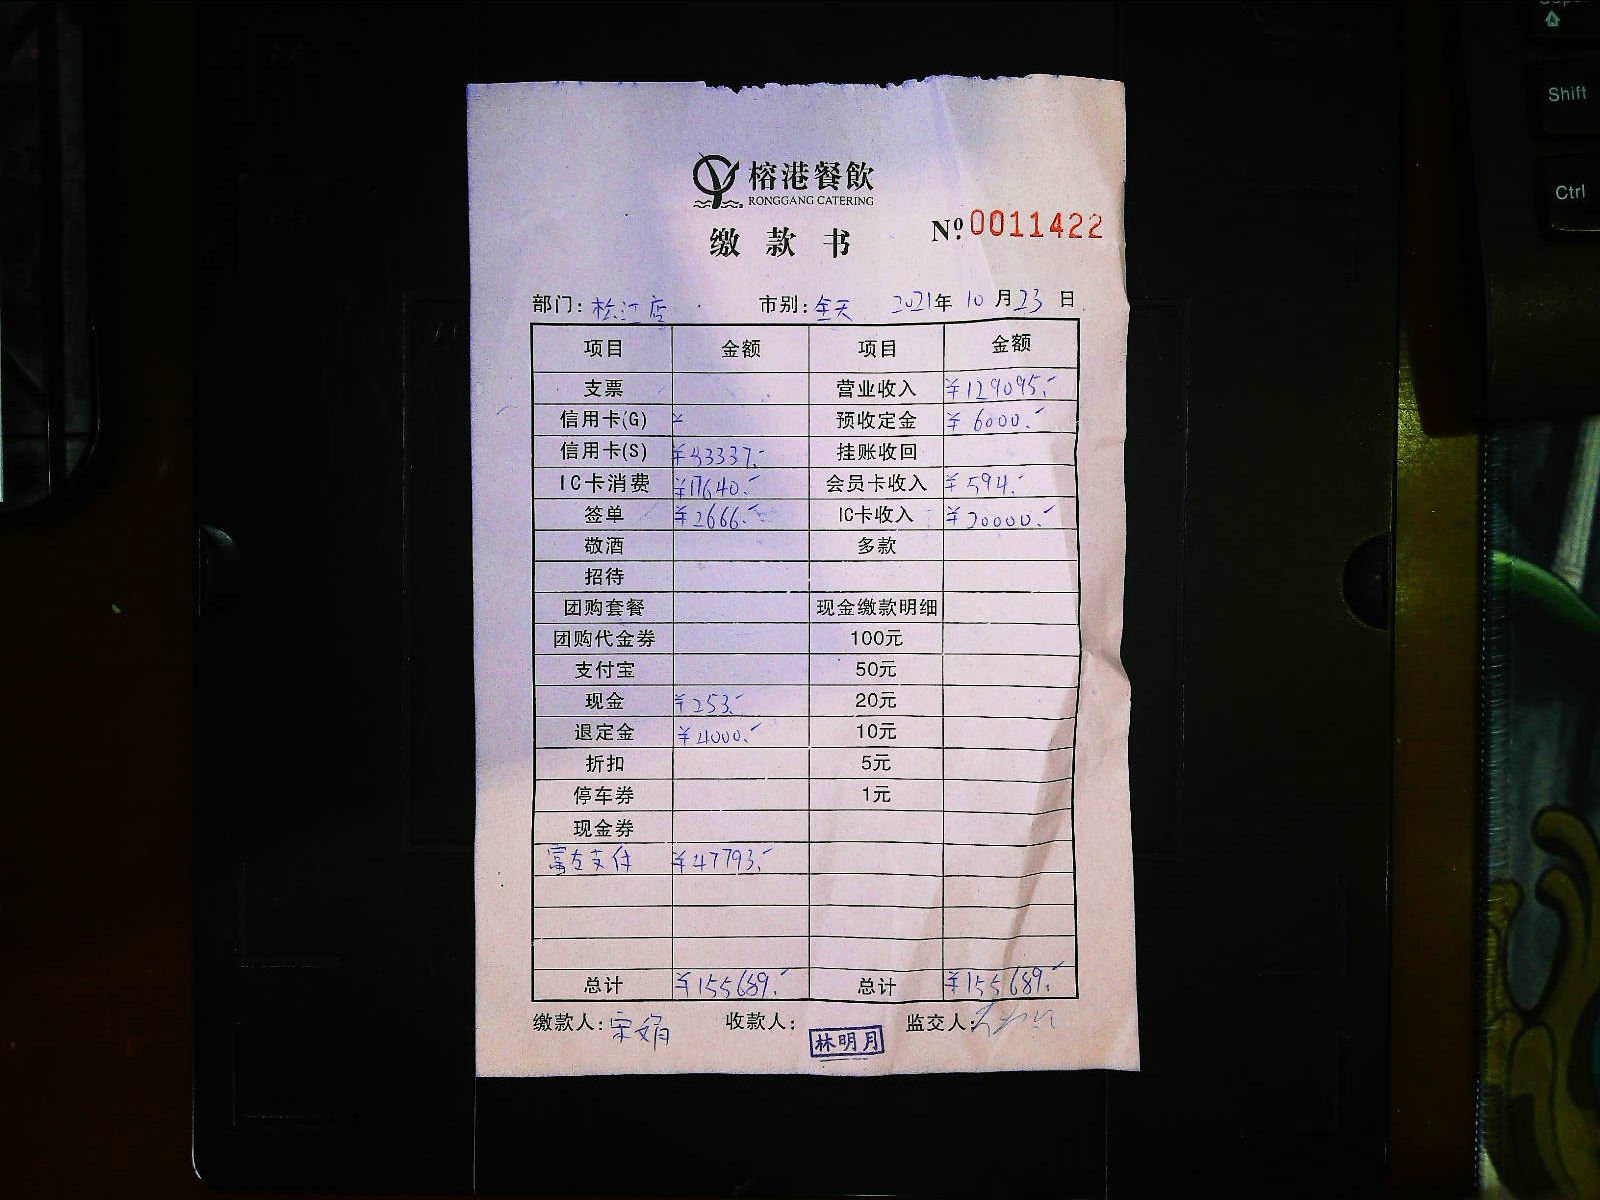 Shift
Ctrl
榕港餐飲
RONGGANG CATERING
缴款书
Nº 0011422
部门: 松江店 市别: 全天 2021年10月23日
项目 金额 项目 金额
支票 营业收入 ¥129095.-
信用卡(G) ¥ 预收定金 ¥6000.-
信用卡(S) ¥83337.- 挂账收回
IC卡消费 ¥17640.- 会员卡收入 ¥594.-
签单 ¥2666.- IC卡收入 ¥20000.-
敬酒 多款
招待
团购套餐 现金缴款明细
团购代金券 100元
支付宝 50元
现金 ¥253.- 20元
退定金 ¥4000.- 10元
折扣 5元
停车券 1元
现金券
富友支付 ¥47793.-
总计 ¥155689.- 总计 ¥155689.-
缴款人: 宋娟 收款人: 林明月 监交人: